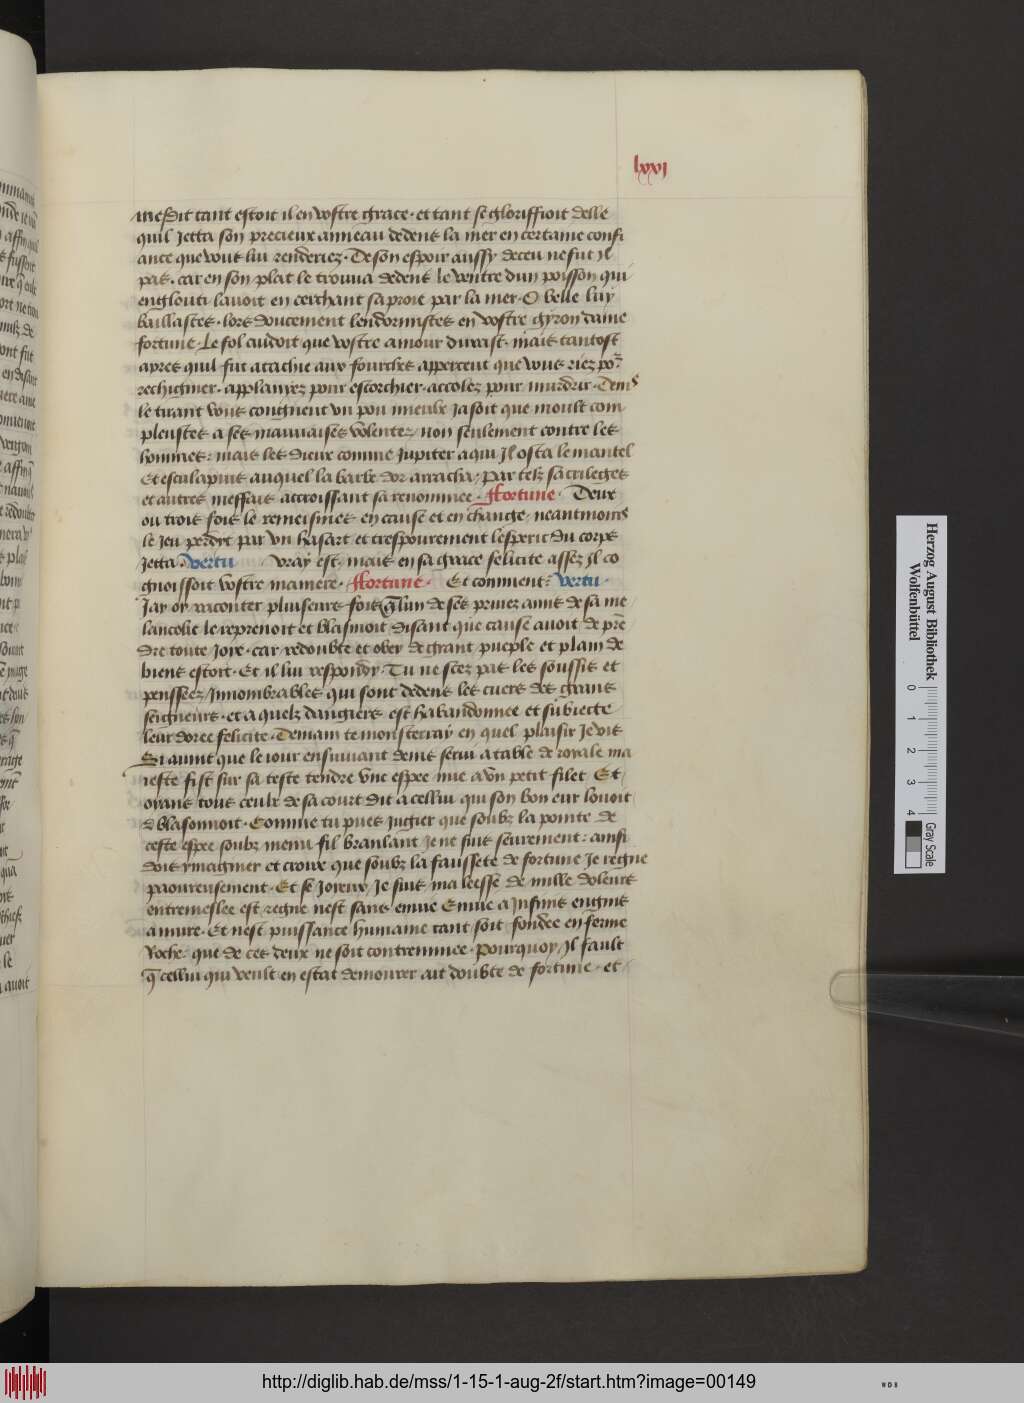 lxxi
mesdit tant estoit il en vostre grace · et tant se gloriffioit delle
quil Jetta son precieux anneau dedens la mer en certaine confi
ance que vous luy renderiez · De son espoir aussy deceu ne fut Jl
pas · car en son plat le trouva dedens le ventre dun poisson qui
englouti lavoit en cerchant sa proie par la mer · O belle luy
baillastes · lors doucement lendormistes en vostre gyron dame
fortune · Le fol cuidoit que vostre amour durast · mais tantost
apres quil fut atachie aux fourches appercent que vous riez po^r
rechigner · applanyez pour escorchier · accolez pour murdrir · Denis
le tirant vous congneut un pou mieulx Ja soit que moult com
pleustes a ses mauvaises volentez / non seulement contre les
hommes : mais les dieux comme Jupiter a qui Jl osta le mantel
Et esculapius auquel la barbe dor arracha / par telz sacrileges
et autres meffais accroissant sa renommee · Ffortune · Deux
ou trois fois le remeismes en cause et en change / neantmoins
le Jeu perdyt par un hasart et trespourement lesperit du corps
Jetta · Vertu Vray est / mais en sa grace felicite assez Jl co
gnoissoit vostre maniere · Ffortune · Et comment : Vertu ·
Jay oy raconter pluiseurs fois q̄ lun de ses privez amis de sa me
lancolie le reprenoit et blasmoit / disant que cause avoit de prē
dre toute Joye · car redoubte et obey de grant pueple et plain de
biens estoit · Et il luy respondy · Tu ne scez pas les soussis et
penssees / Jnnombrables qui sont dedens les cuers des grans
seigneurs · et a quelz dangiers est habandonnee et subiecte
leur doree felicite · Demain te monsterray en quel plaisir Je vis
Si avint que le iour ensuivant denis servi a table de royale ma
ieste fist sur sa teste tendre une espee nue a un petit filet Et
oyans tous ceulx de sa court dit a cellui qui son bon eur louoit
& blasonnoit · Comme tu pues Jugier que soubz la pointe de
ceste espee soubz menu fil branlant Je ne suis seurement : ainsi
dois ymaginer et croire que soubz la faussete de fortune Je regne
paoureusement · Et se Joyeux / Je suis ma leesse de mille doleurs
entremeslee est / regne nest sans envie Envie a Jnfinis engins
a nuire · Et nest puissance humaine tant soit fondee en ferme
Roche / que de ces deux ne soit contremnee · pourquoy / Jl fault
q̄ cellui qui veult en estat demourer ait doubte de fortune · et
Herzog August Bibliothek
Wolfenbüttel
0 1 2 3 4
Gray Scale
http://diglib.hab.de/mss/1-15-1-aug-2f/start.htm?image=00149